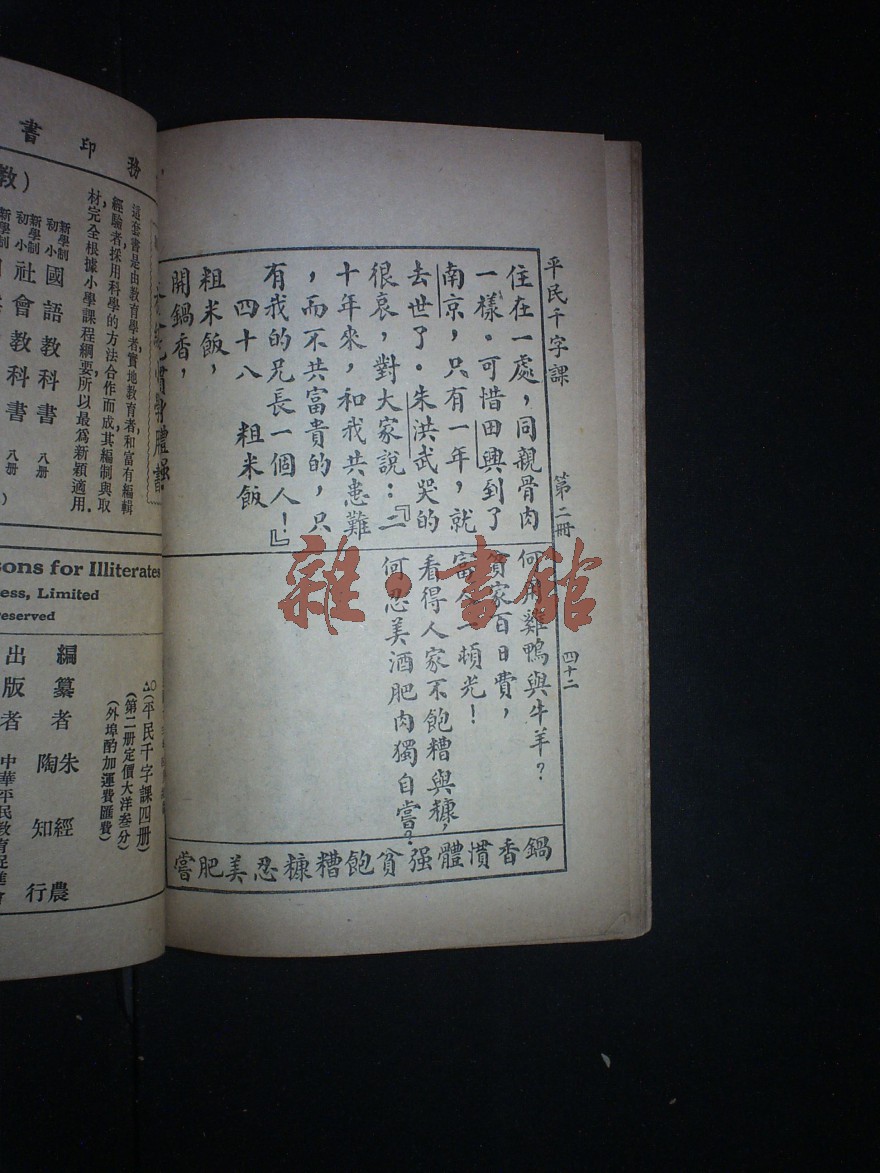 平民千字課 第二冊 四十二
住在一處，同親骨肉
一樣。可惜田興到了
南京，只有一年，就
去世了。朱洪武哭的
很哀，對大家說：『二
十年來，和我共患難
，而不共富貴的，只
有我的兄長一個人！』
四十八 粗米飯
粗米飯，
開鍋香，
何用雞鴨與牛羊？
貧家百日費，
富翁一頓光！
看得人家不飽糟與糠，
何忍美酒肥肉獨自嘗？
鍋香慣體强貧飽糟糠忍美肥嘗
雜·書館
務印書
（教
這套書是由教育學者，實地教育者和富有編輯
經驗者採用科學的方法合作而成，其編制與取
材完全根據小學課程綱要，所以最爲新穎適用．
新學制初小國語教科書 八册
新學制初小社會教科書 八册
sons for Illiterates
ess, Limited
reserved
（平民千字課四册）
（第二册定價大洋叁分）
（外埠酌加運費匯費）
編纂者 朱經農
陶知行
出版者 中華平民教育促進會